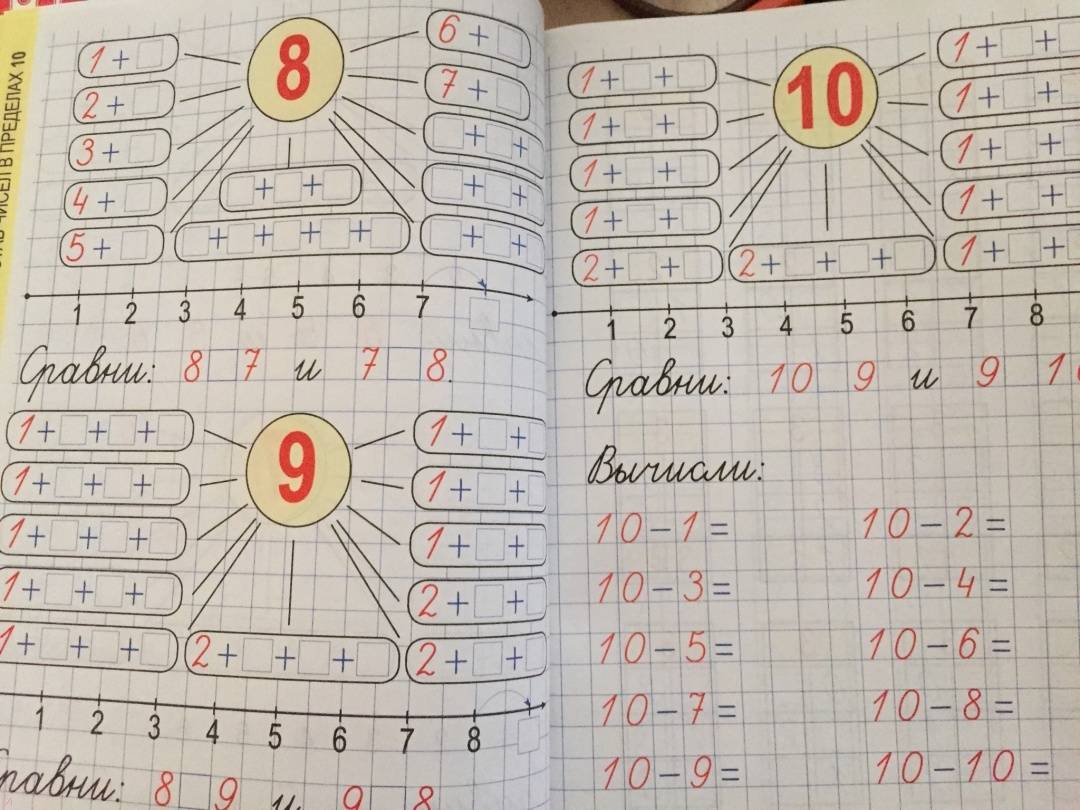 СЕЛ В ПРЕДЕЛАХ 10
8
1 + □
2 + □
3 + □
4 + □
5 + □
6 + □
7 + □
□ + □ +
□ + □ +
□ + □ +
□ + □ + □
□ + □ + □ + □ + □
1 2 3 4 5 6 7 □
Сравни: 8 7 и 7 8.
9
1 + □ + □ + □
1 + □ + □ + □
1 + □ + □ + □
1 + □ + □ + □
1 + □ + □ + □
2 + □ + □ + □
1 + □ +
1 + □ +
1 + □ +
2 + □ +
2 + □ +
1 2 3 4 5 6 7 8 □
равни: 8 9 и 9 8
10
1 + □ + □
1 + □ + □
1 + □ + □
1 + □ + □
2 + □ + □
2 + □ + □ + □
1 + □ +
1 + □ +
1 + □ +
1 + □ +
1 + □ +
1 2 3 4 5 6 7 8
Сравни: 10 9 и 9 1
Вычисли:
10 – 1 = 10 – 2 =
10 – 3 = 10 – 4 =
10 – 5 = 10 – 6 =
10 – 7 = 10 – 8 =
10 – 9 = 10 – 10 =